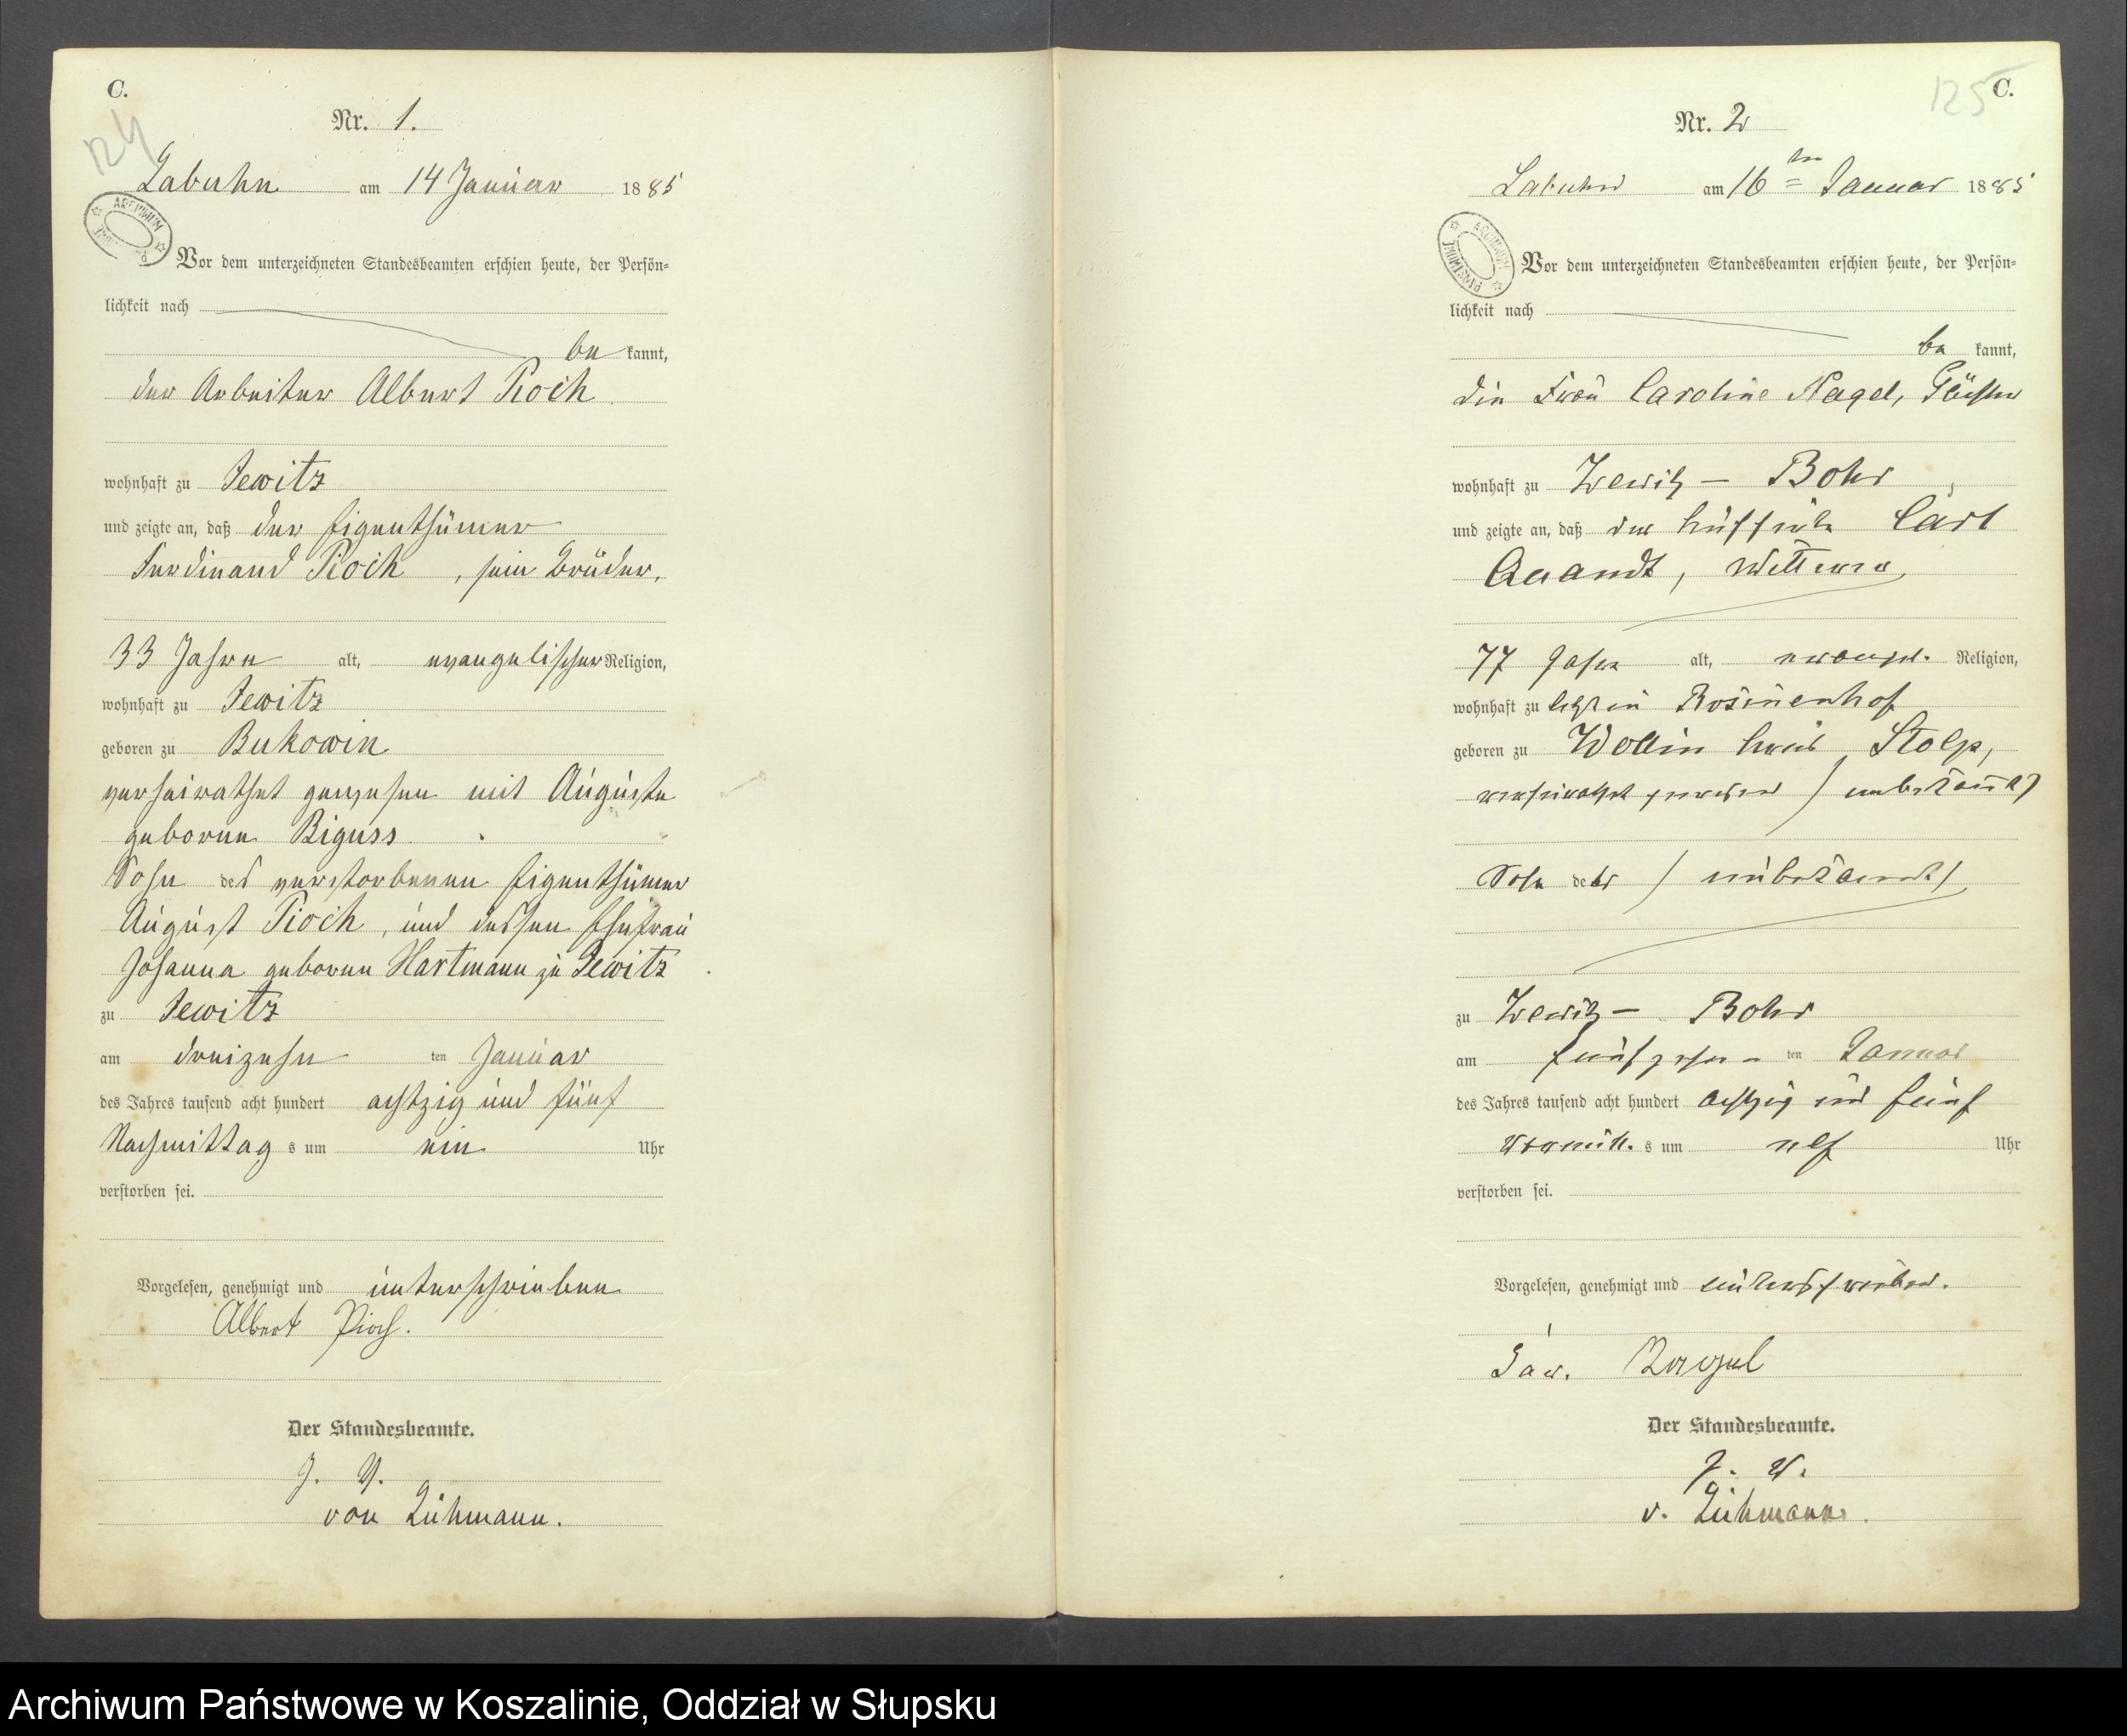 C.
124
Nr. 1.
Labuhn am 14 Januar 1885
ARCHIWUM
Vor dem unterzeichneten Standesbeamten erschien heute, der Persön-
lichkeit nach
be kannt,
der Arbeiter Albert Pioch
wohnhaft zu Jewitz
und zeigte an, daß der Eigenthümer
Ferdinand Pioch, sein Bruder,
33 Jahre alt, evangelischer Religion,
wohnhaft zu Jewitz
geboren zu Bukowin
verheirathet gewesen mit Auguste
geborene Biguss
Sohn des verstorbenen Eigenthümer
August Pioch, und dessen Ehefrau
Johanna geborene Hartmann zu Jewitz
zu Jewitz
am dreizehn ten Januar
des Jahres tausend acht hundert achtzig und fünf
Nachmittag s um ein Uhr
verstorben sei.
Vorgelesen, genehmigt und unterschrieben
Albert Pioch.
Der Standesbeamte.
J. V.
von Lühmann.
C.
125
Nr. 2
Labuhn am 16ten Januar 1885
ARCHIWUM PAŃSTWOWE
Vor dem unterzeichneten Standesbeamten erschien heute, der Persön-
lichkeit nach
be kannt,
die Frau Caroline Nagel,
wohnhaft zu Zewitz - Bohr,
und zeigte an, daß der Carl
Wittwer,
77 Jahre alt, evangel. Religion,
wohnhaft zu Rosinenhof
geboren zu Wollin Kreis Stolp,
verheirathet gewesen (unbekannt)
Sohn der (unbekannt)
zu Zewitz - Bohr
am fünfzehn ten Januar
des Jahres tausend acht hundert achtzig und fünf
Vormitt. s um elf Uhr
verstorben sei.
Vorgelesen, genehmigt und unterschrieben.
Nagel
Der Standesbeamte.
J. V.
v. Lühmann.
Archiwum Państwowe w Koszalinie, Oddział w Słupsku